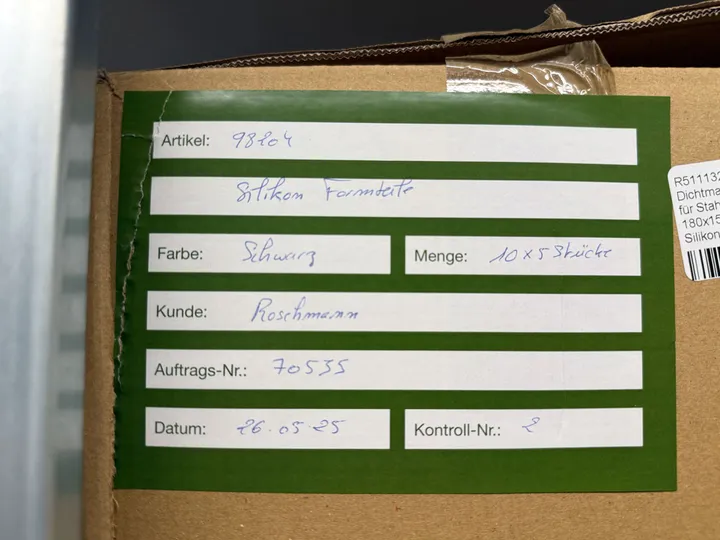 Artikel: 98104
Silikon Formteile
Farbe: Schwarz
Menge: 10 x 5 Stücke
Kunde: Roschmann
Auftrags-Nr.: 70535
Datum: 26.05.25
Kontroll-Nr.: 2
R511132
Dichtma
für Stah
180x15
Silikon